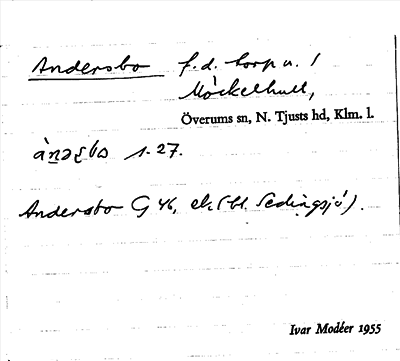 Andersbo f.d. torp u. /
Möckelhult,
Överums sn, N. Tjusts hd, Klm. l.
1.27.
Andersbo G 46, ek (bl. Sedingsjö).
Ivar Modéer 1955